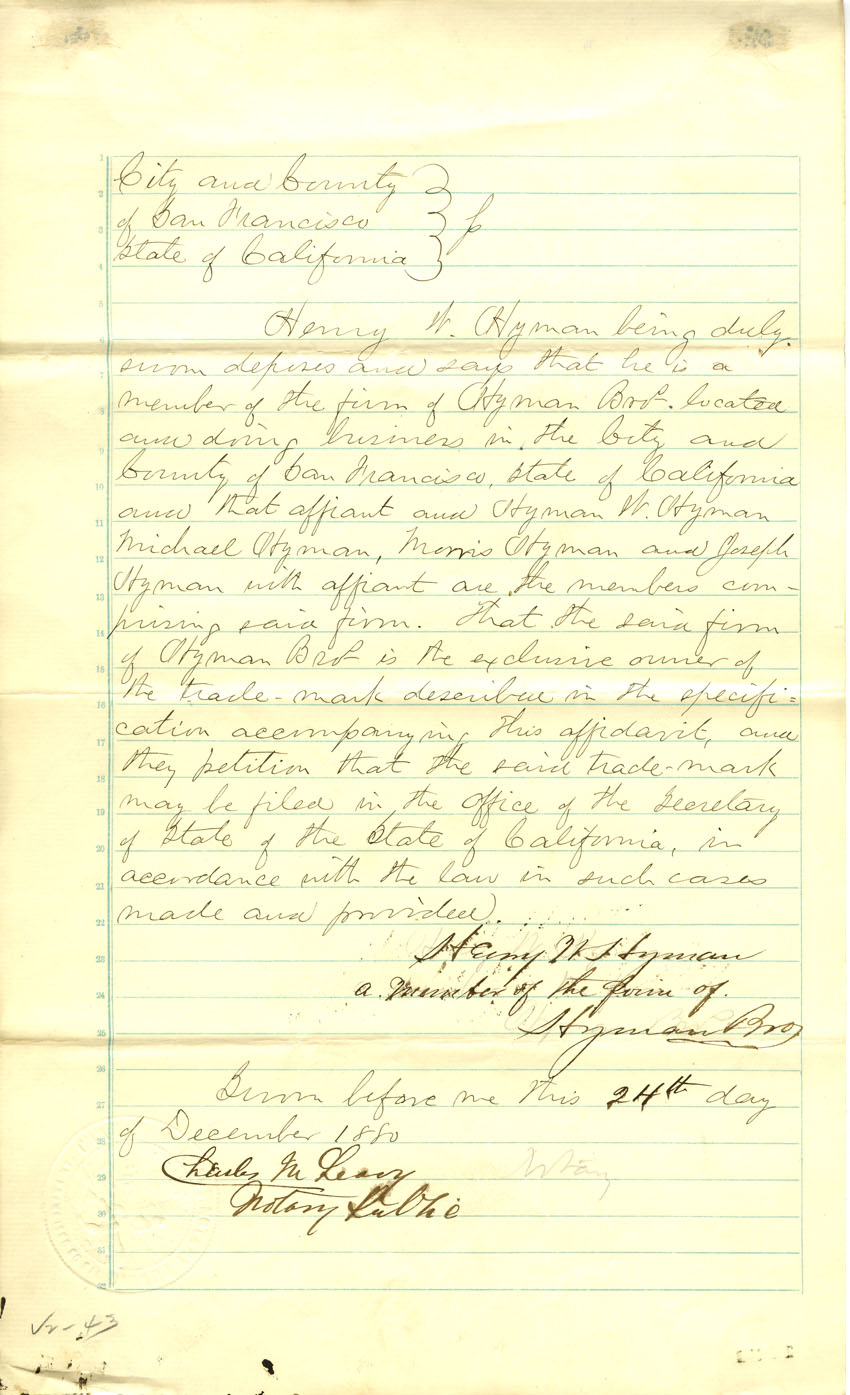 City and County
of San Francisco
State of California } ss
Henry W. Hyman being duly
sworn deposes and says that he is a
member of the firm of Hyman Bros. located
and doing business in the City and
County of San Francisco, State of California
and that affiant and Hyman W. Hyman
Michael Hyman, Morris Hyman and Joseph
Hyman with affiant are the members com-
prising said firm. That the said firm
of Hyman Bros is the exclusive owner of
the trade-mark described in the specifi=
cation accompanying this affidavit, and
they petition that the said trade-mark
may be filed in the office of the Secretary
of State of the State of California, in
accordance with the law in such cases
made and provided.
Henry W. Hyman
a member of the firm of
Hyman Bros
Sworn before me this 24th day
of December 1880
Charles M. Leavy
Notary Public
Notary